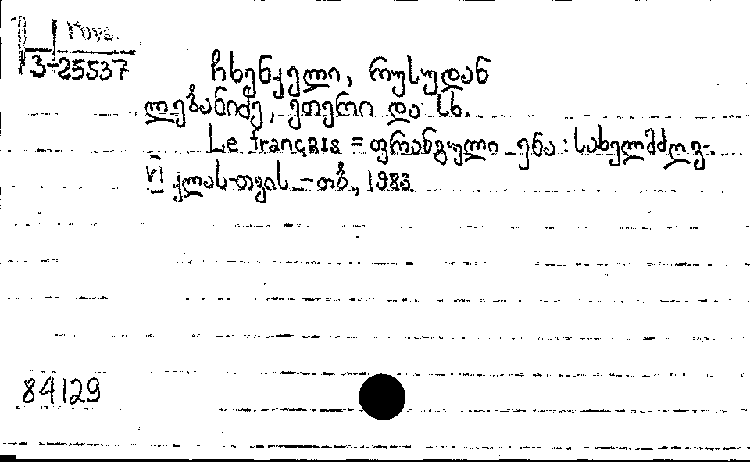 3-25537
ჩხენკელი, რუსუდან
ლებანიძე, ეთერი და სხ.
Le français = ფრანგული ენა: სახელმძღვ.
VI კლას-თვის.–თბ., 1983
84129